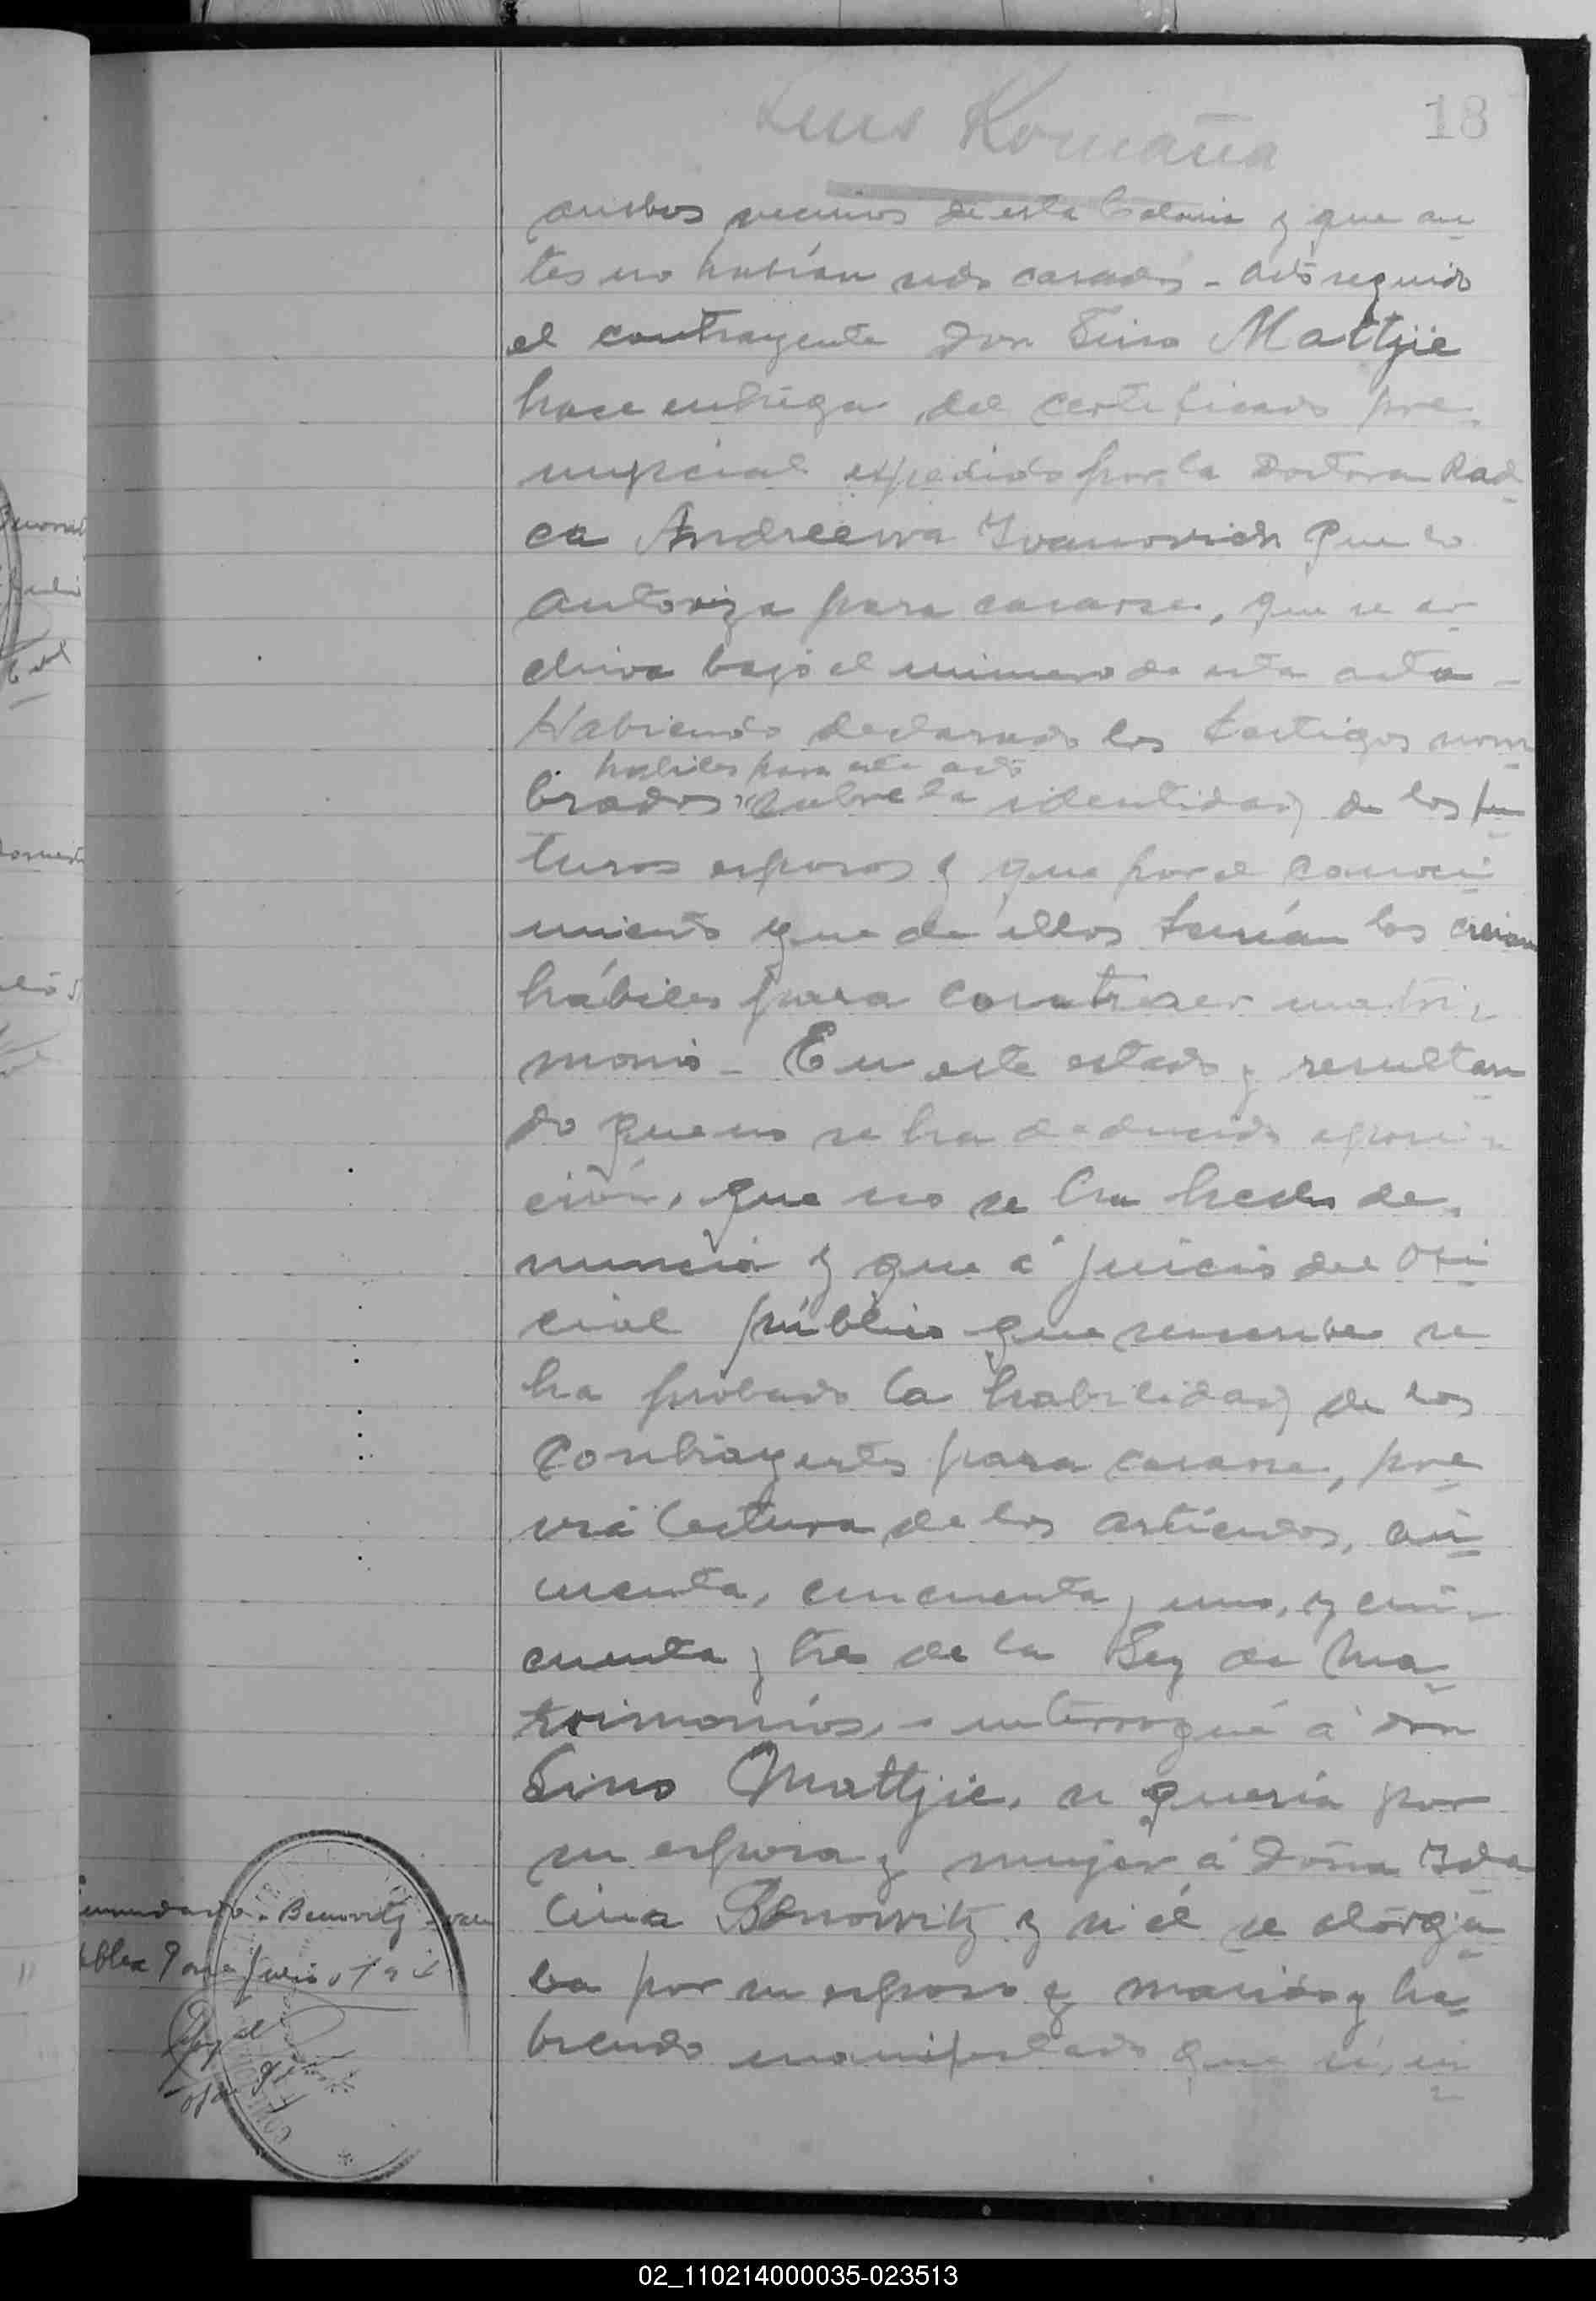 18
Luis Romaña
ambos vecinos de esta Colonia y que an
tes no habían sido casados - Acto seguido
el contrayente Don Lino Mattjie
hace entrega del certificado pre
nupcial expedido por la Doctora Rad
ca Andreewa Ivanovich que lo
autoriza para casarse, que se ar
chiva bajo el número de esta acta -
Habiendo declarado los testigos nom
habiles para este acto
brados sobre la identidad de los fu
turos esposos y que por el conoci
miento que de ellos tenían los creian
hábiles para contraer matri
monio - En este estado y resultan
do que no se ha deducido oposi
ción, que no se ha hecho de
nuncia y que á juicio del Ofi
cial público que suscribe se
ha probado la habilidad de los
contrayentes para casarse, pre
via lectura de los artículos, cin
cuenta, cincuenta y uno, y cin
cuenta y tres de la Ley de Ma
trimonios, interrogué á don
Lino Mattjie, si quería por
su esposa y mujer á Doña Ida
Lina Benowitz y si él se otorga
ba por su esposo y marido y ha
biendo manifestado que sí, in
Enmendado - Benovitz - vale
02_110214000035-023513